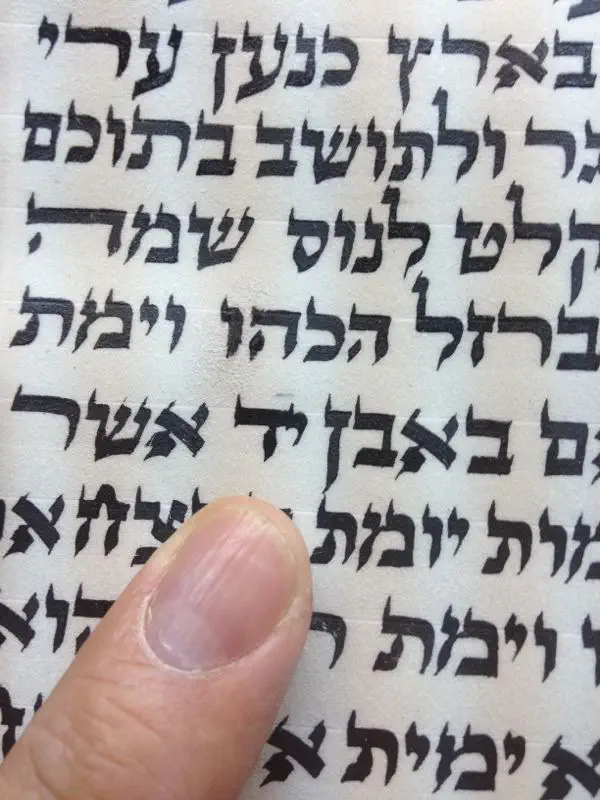 בארץ כנען ערי
ולתושב בתוכם
קלט לנוס שמה
ברזל הכהו וימת
באבן יד אשר
מות יומת
וימת
ימית